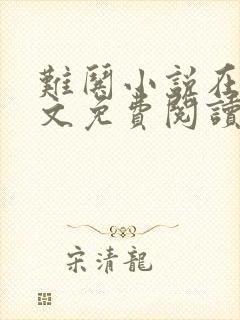 難鬩小說在
文免費閱讀
宋清龍